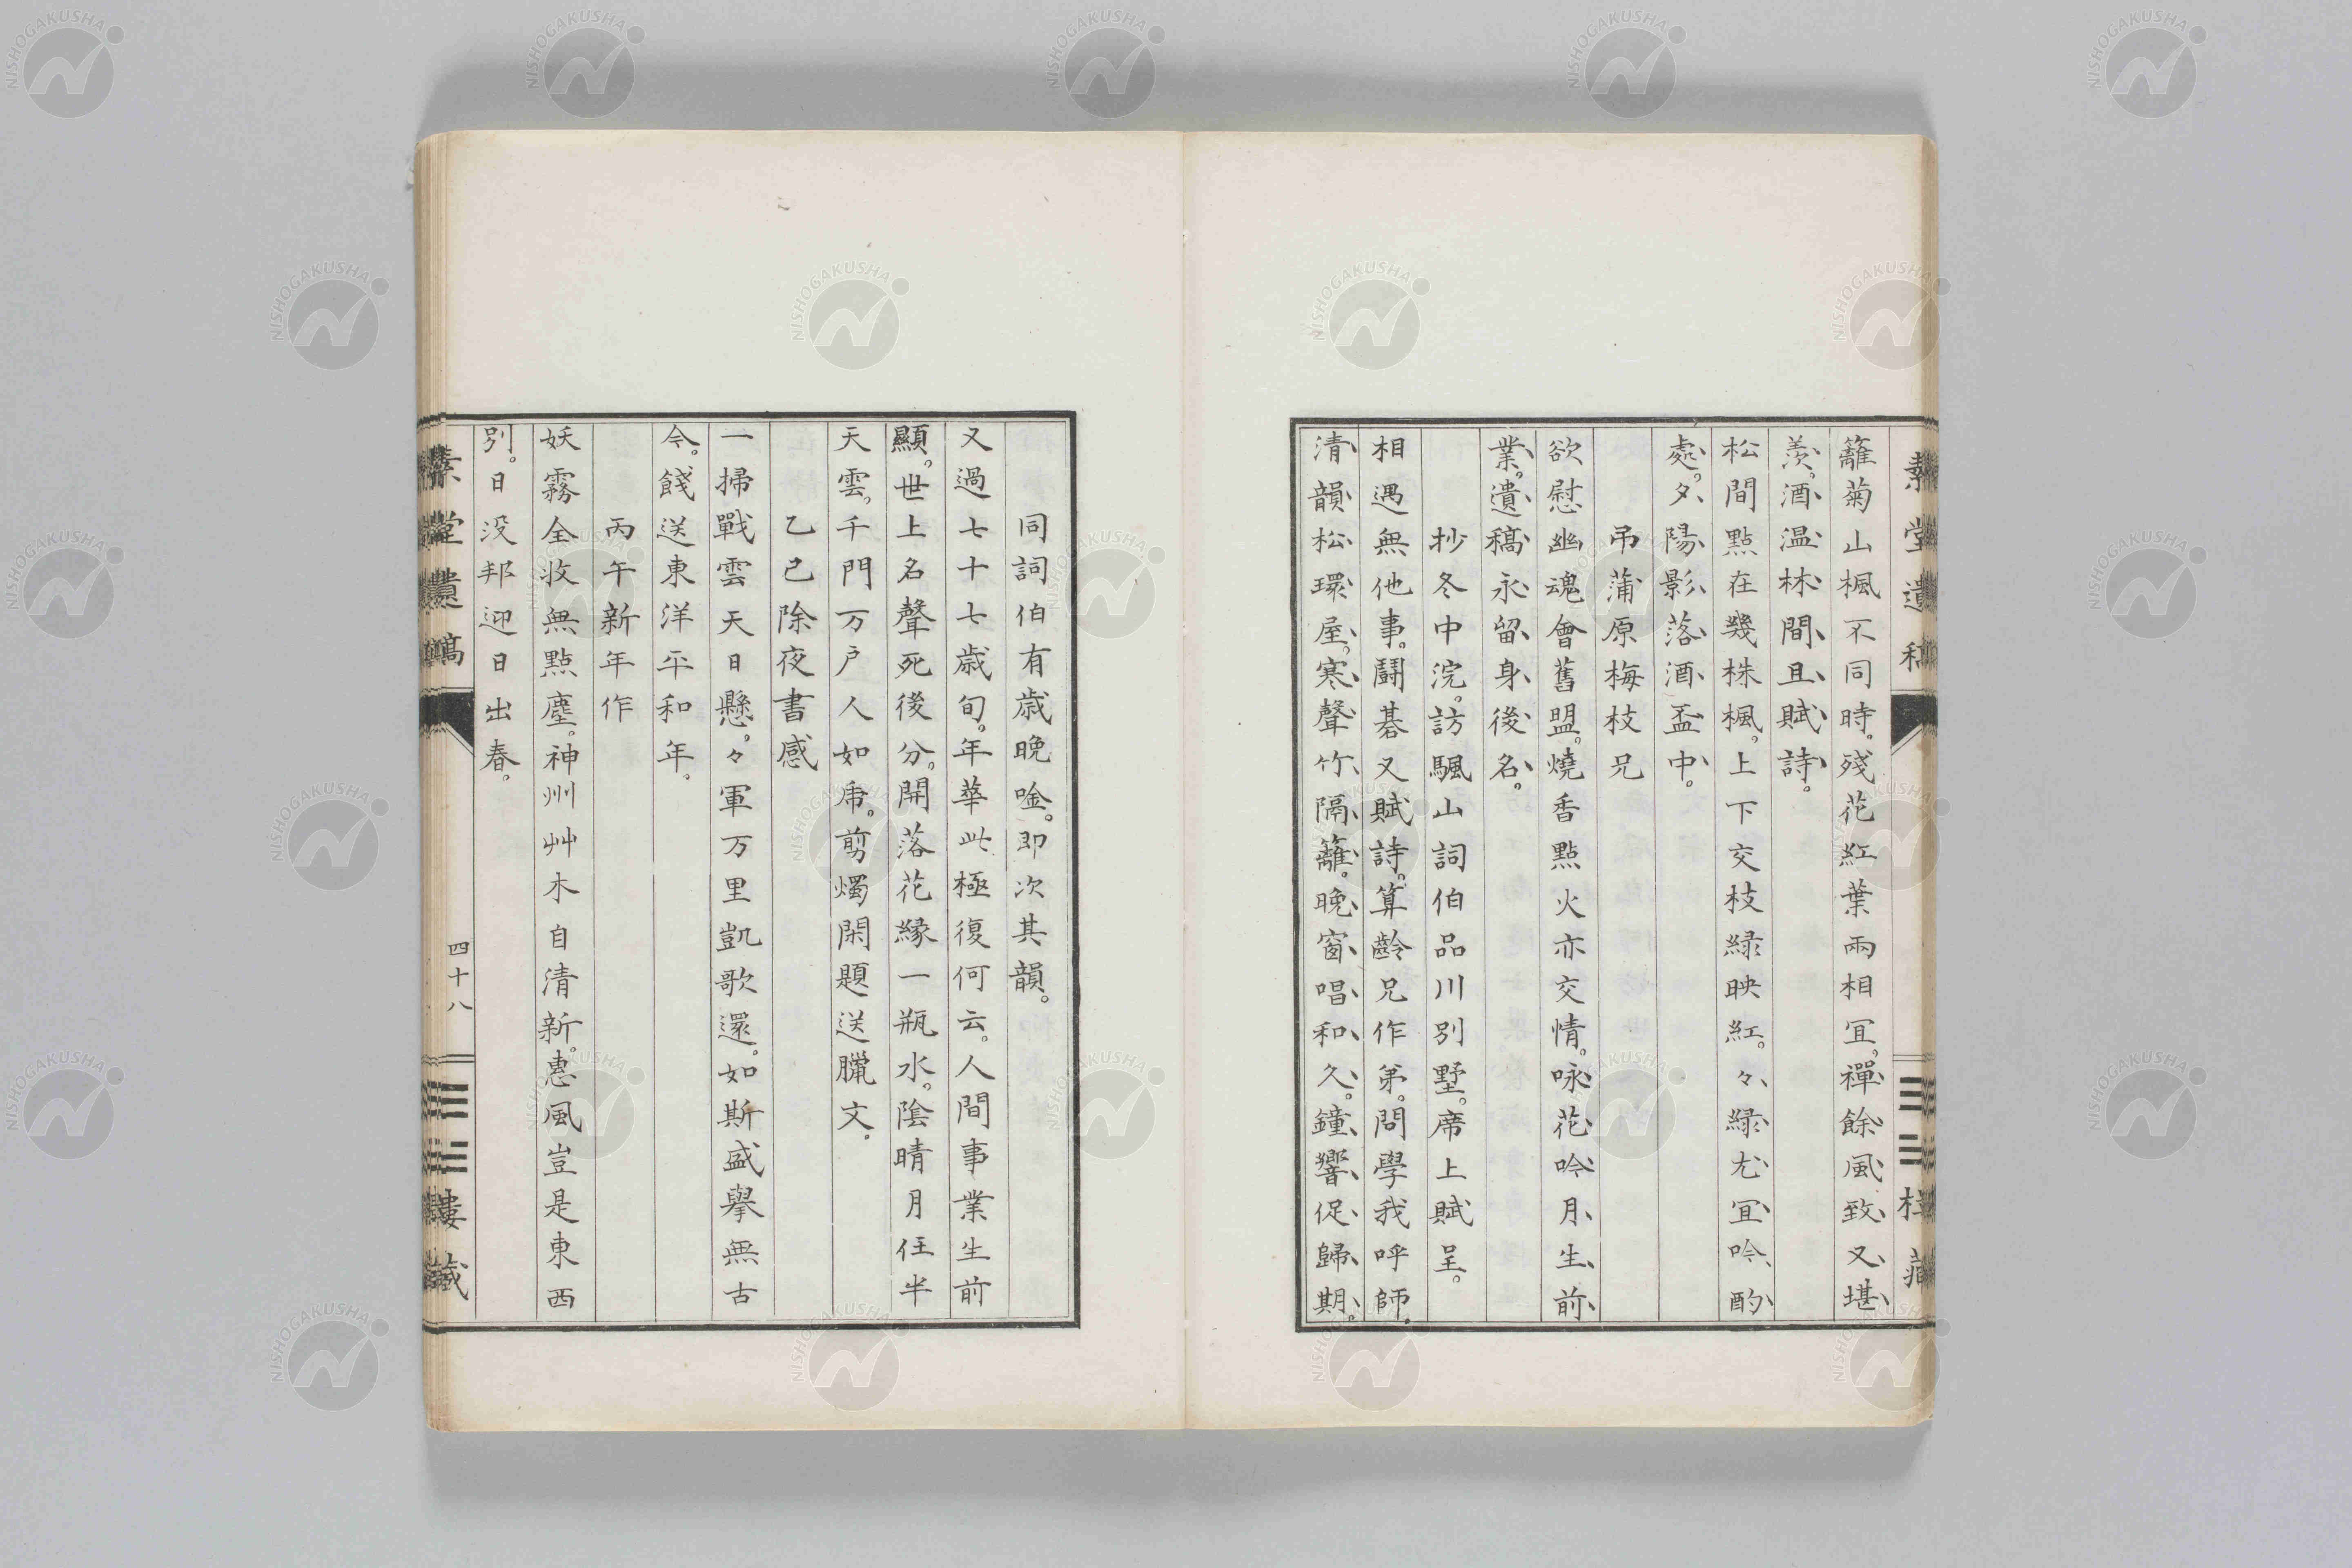 籬菊山楓不同時。殘花紅葉兩相宜。禪餘風致又堪
羨。酒温林間且賦詩。
松間點在幾株楓。上下交枝緑映紅。々緑尤宜吟酌
處。夕陽影落酒盃中。
吊蒲原梅枝兄
欲慰幽魂會舊盟。燒香點火亦交情。咏花吟月生前
業。遺稿永留身後名。
抄冬中浣。訪颿山詞伯品川別墅。席上賦呈。
相遇無他事。鬪碁又賦詩。算齡兄作弟。問學我呼師。
清韻松環屋。寒聲竹隔籬。晩窗唱和久。鐘響促歸期。
同詞伯有歳晩唫。即次其韻。
又過七十七歳旬。年華此極復何云。人間事業生前
顯。世上名聲死後分。開落花縁一瓶水。陰晴月任半
天雲。千門万戸人如帍。剪燭閑題送臘文。
乙巳除夜書感
一掃戰雲天日懸。々軍万里凱歌還。如斯盛擧無古
今。餞送東洋平和年。
丙午新年作
妖霧全收無點塵。神州艸木自清新。惠風豈是東西
別。日没邦迎日出春。
素堂遺稿
四十八
三三樓藏
NISHOGAKUSHA